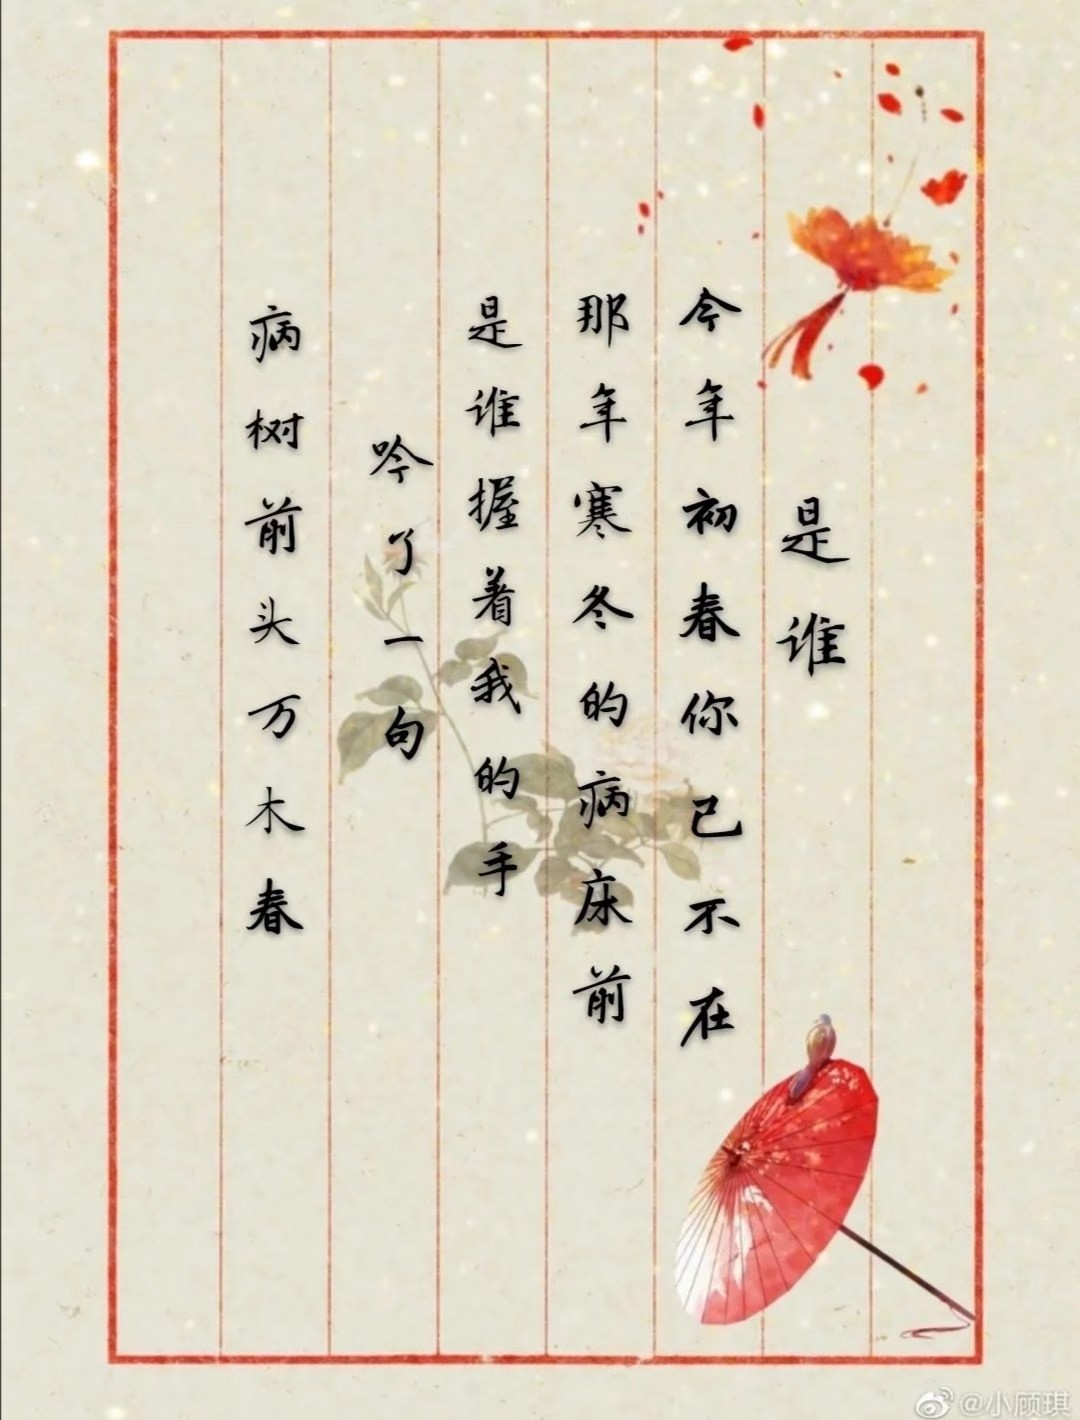 是谁
今年初春你已不在
那年寒冬的病床前
是谁握着我的手
吟了一句
病树前头万木春
@小顾琪